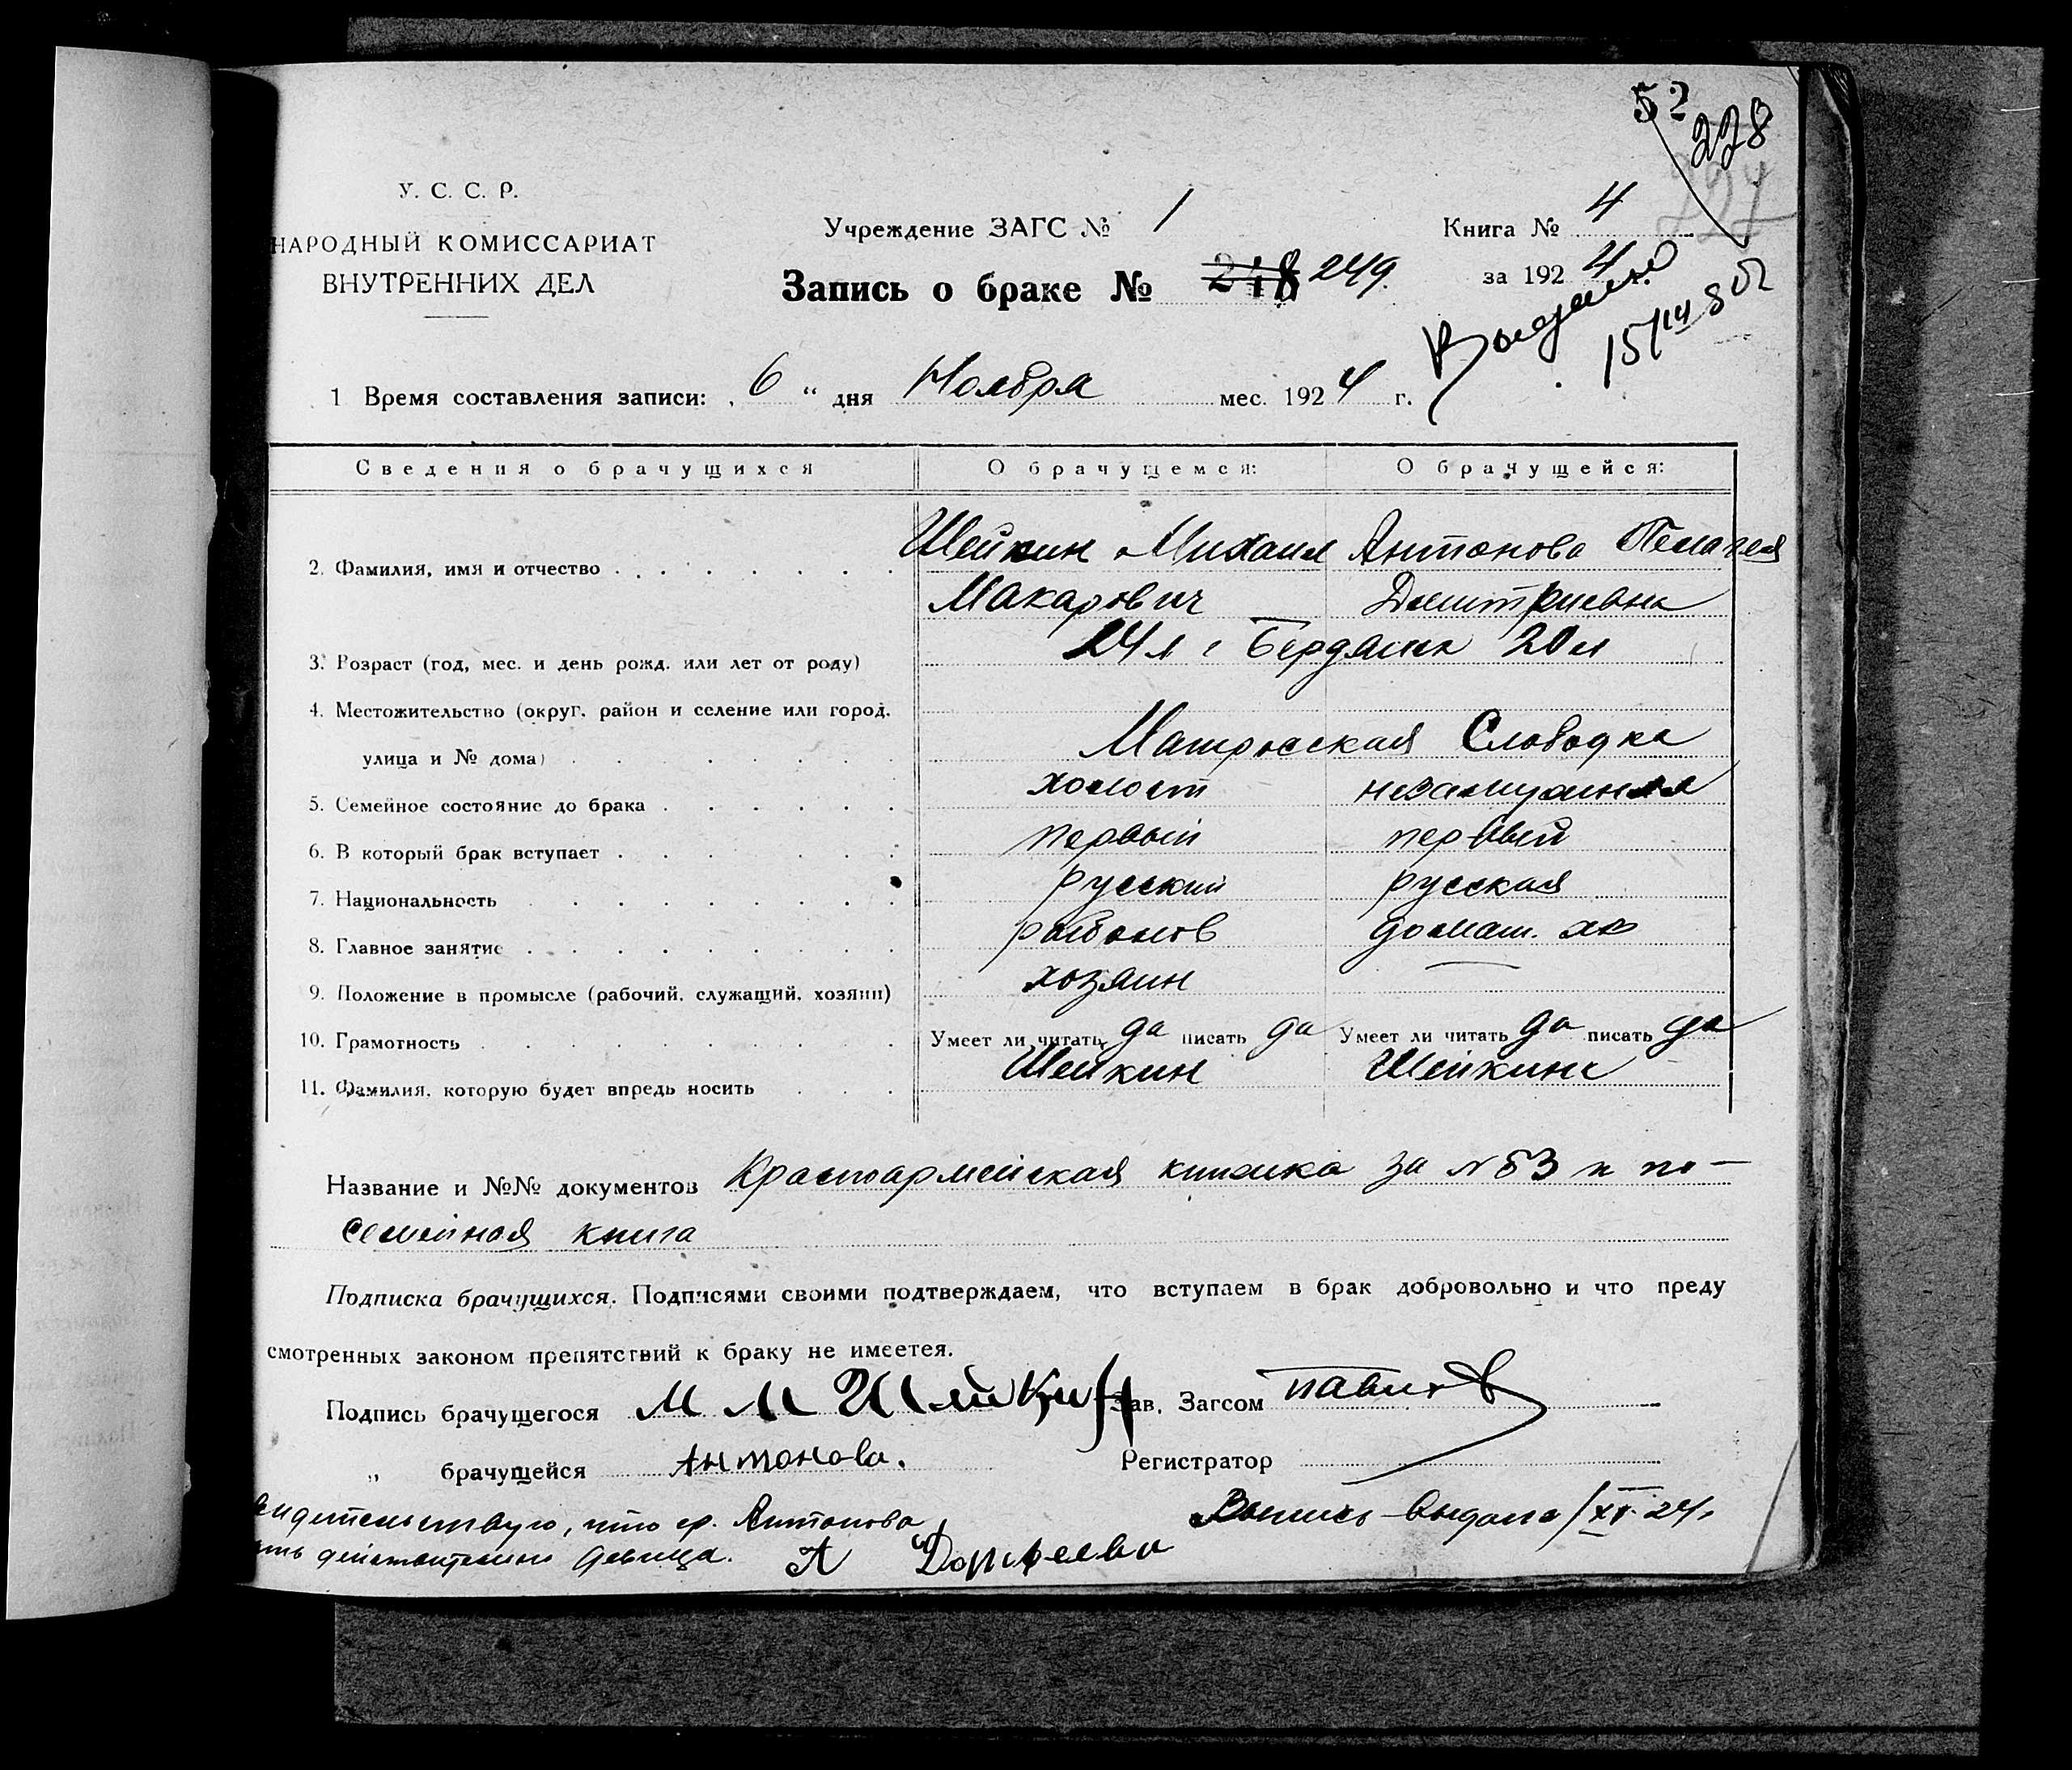 52
228
У. С. С. Р.
НАРОДНЫЙ КОМИССАРИАТ
ВНУТРЕННИХ ДЕЛ
Учреждение ЗАГС № 1
Запись о браке № 248 249
Книга № 4
за 1924 г.
1 Время составления записи: „ 6 “ дня Ноября мес. 1924 г.
Сведения о брачущихся
О брачущемся:
О брачущейся:
2. Фамилия, имя и отчество
Шейкин Михаил
Макарович
Антонова Пелагея
Дмитриевна
3. Возраст (год, мес. и день рожд. или лет от роду)
24 л г Бердянск 20 л
4. Местожительство (округ, район и селение или город,
улица и № дома)
Матросская Слободка
5. Семейное состояние до брака холост незамужняя
6. В который брак вступает первый первый
7. Национальность русский русская
8. Главное занятие домаш. хоз
9. Положение в промысле (рабочий, служащий, хозяин) хозяин —
10. Грамотность Умеет ли читать да писать да Умеет ли читать да писать да
11. Фамилия, которую будет впредь носить Шейкин Шейкина
Название и №№ документов Красноармейская книжка за № и по-
семейная книга
Подписка брачущихся. Подписями своими подтверждаем, что вступаем в брак добровольно и что преду
смотренных законом препятствий к браку не имеется.
Подпись брачущегося М М Шейкин
Зав. Загсом Павлов
„ брачущейся Антонова.
Регистратор
видетельствую, что гр. Антонова
действительно девица.
Выпись выдана /XI-24 г.